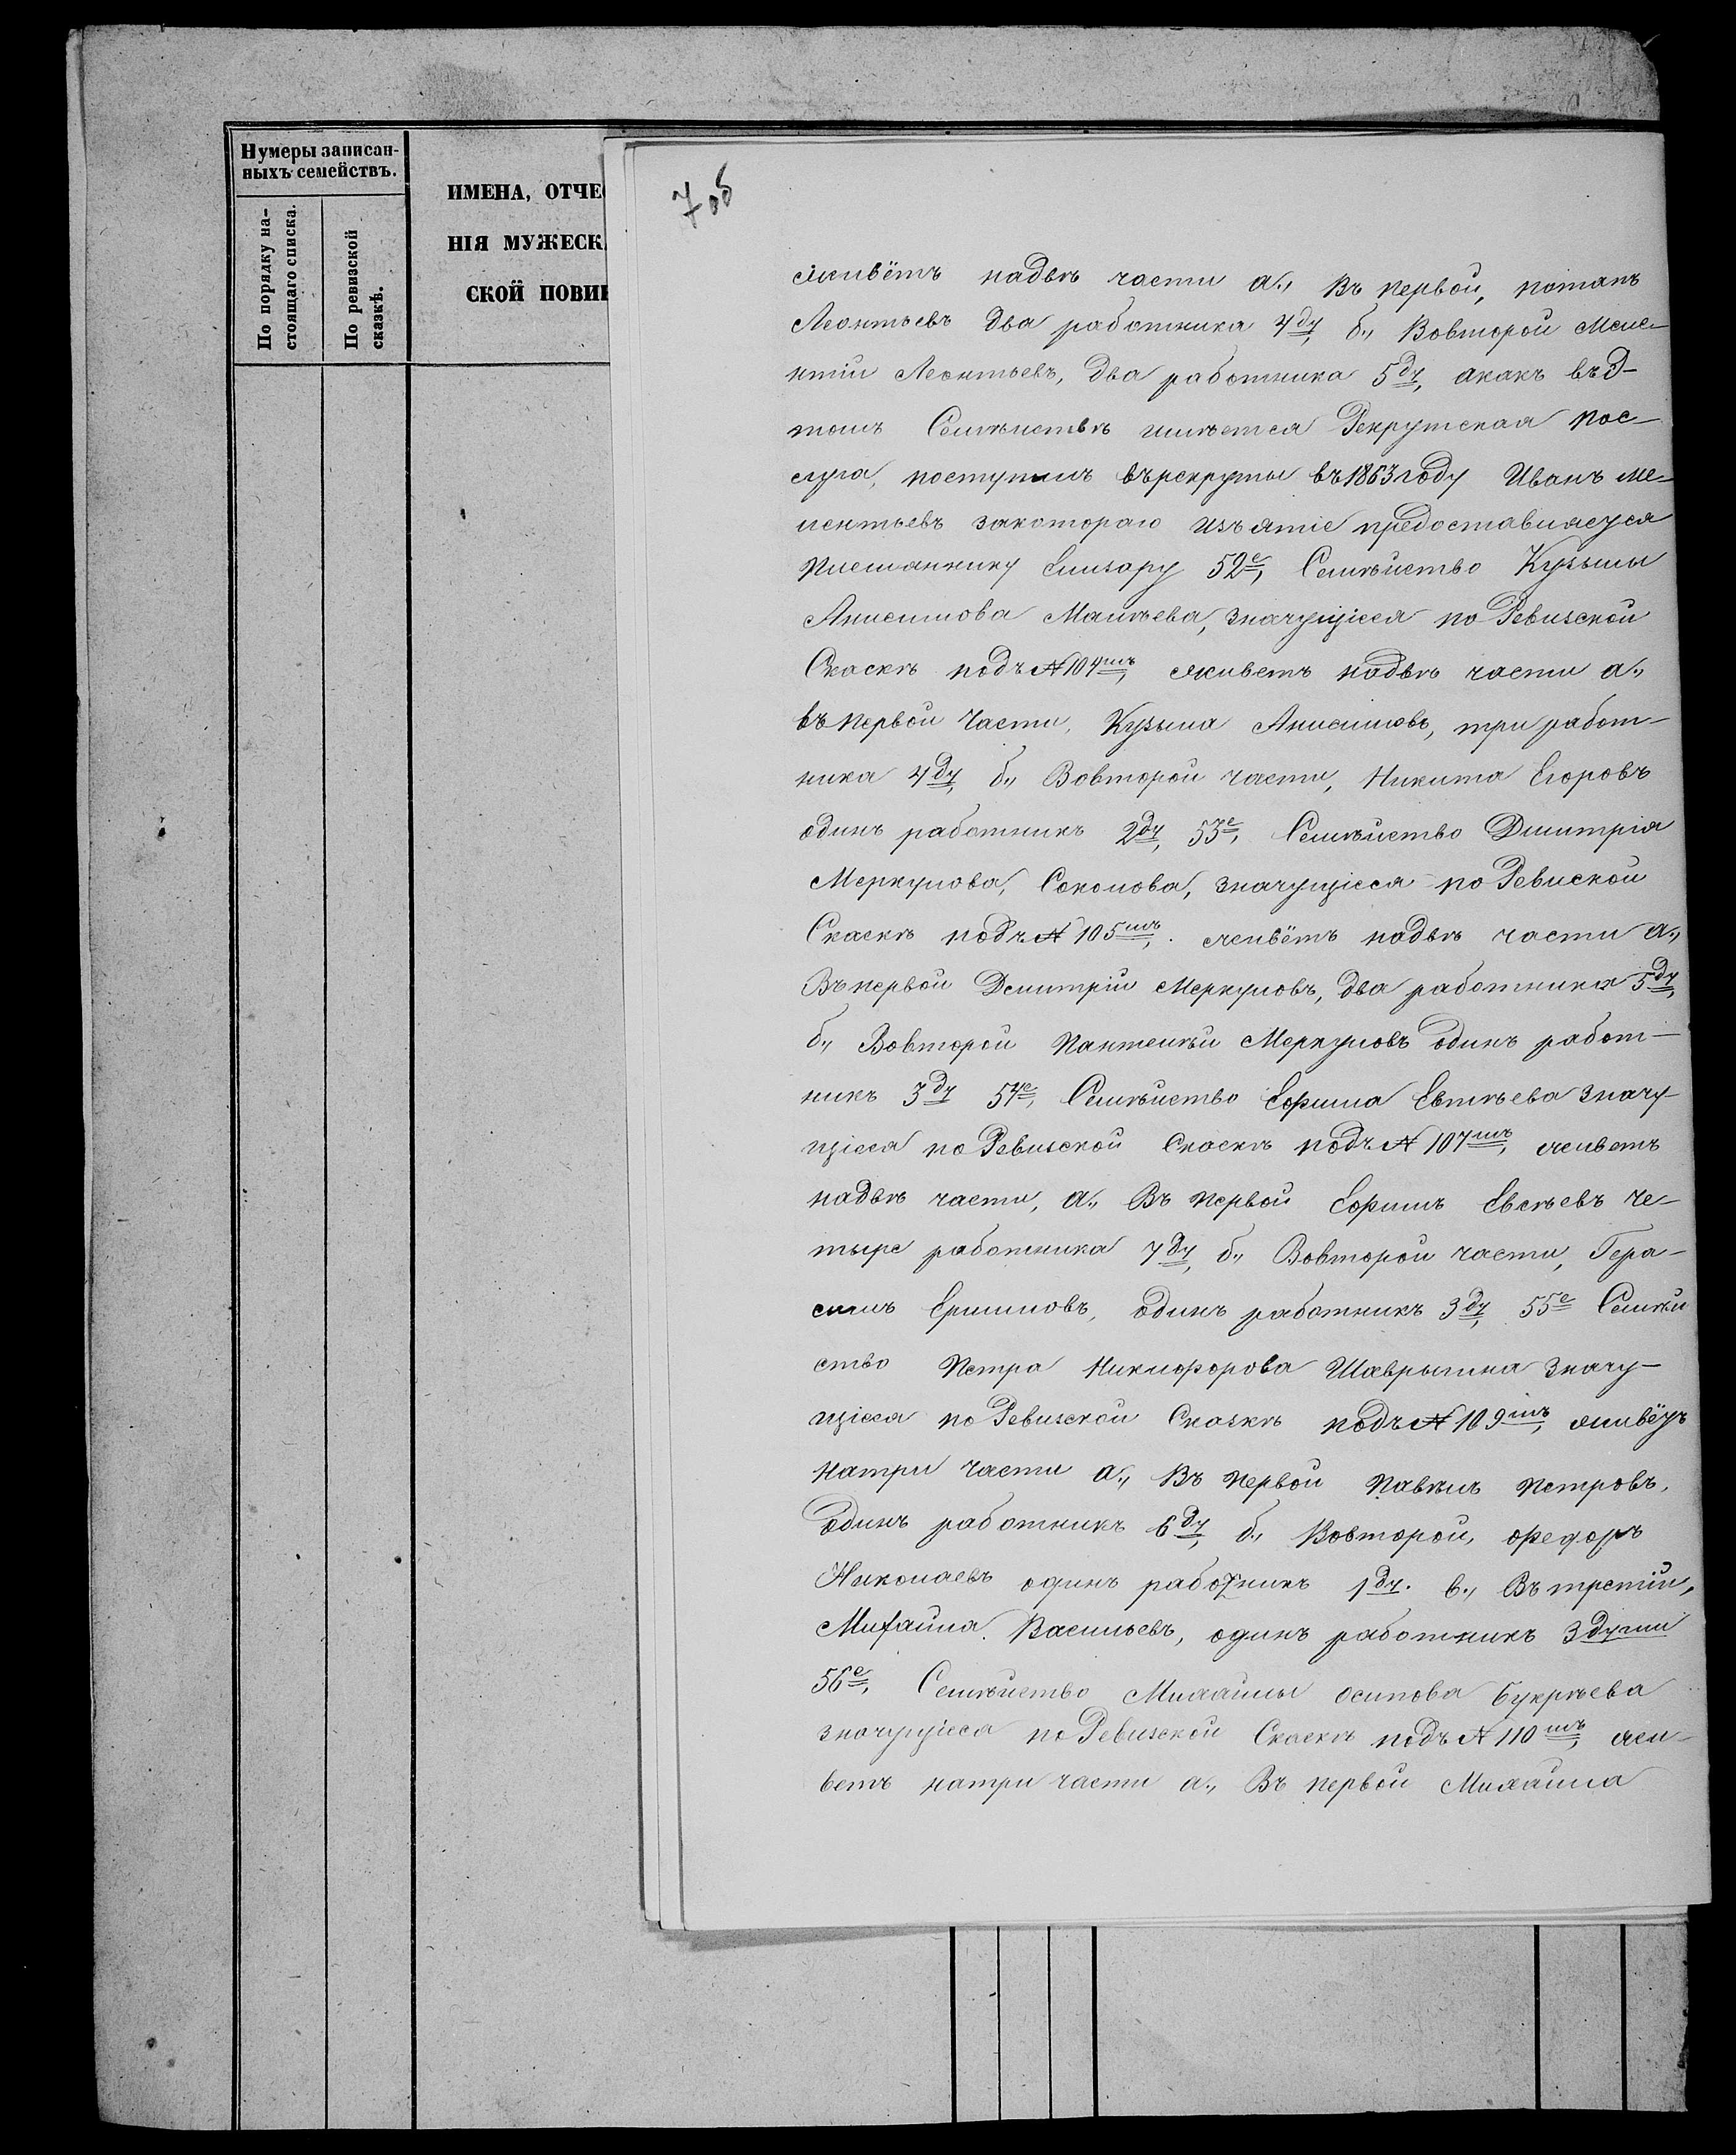 Нумеры записан-
ныхъ семействъ.
По порядку на-
стоящаго списка.
По ревизской
сказкѣ.
ИМЕНА, ОТЧЕ
НІЯ МУЖЕСК
СКОЙ ПОВИ
7об
живётъ надвѣ части а., Въ первой, потапъ
Леонтьевъ два работника 4ду, б., Вовторой Меле-
нтій Леонтьевъ, два работника 5ду, акакъ въэ-
томъ Семѣиствѣ имѣется Рекрутская пос-
луга, поступилъ върекруты въ1863году Иванъ ме-
лентьевъ закотораго изъятіе предоставляется
племяннику Елизару 52е, Семѣйство Кузьмы
Анисимова Малѣева, значущіеся по Ревизской
Скаскѣ подъ№104мъ, живетъ надвѣ части а.,
въ первой Части, Кузьма Анисимовъ, три работ-
ника 4ду, б., Вовторой части, Никита Егоровъ
одинъ работникъ 2ду, 53е, Семѣйство Дмитрія
Меркулова, Соколова, значущіеся по Ревиской
Скаскѣ подъ№ 105мъ, живётъ надвѣ части а.,
Въпервой Демитрій Меркуловъ, два работника 5ду,
б., Вовторой Пантелѣй Меркуловъ одинъ работ-
никъ 3ду 54е, Семѣйство Ефима Евтѣева значу-
щіеся по Ревизской Скаскѣ подъ№ 107мъ, живетъ
надвѣ части, а., Въ первой Ефимъ Евсѣевъ че-
тыре работника 7ду, б., Вовторой части, Гера-
симъ Ефимовъ, одинъ работникъ 3ду, 55е Семѣй
ство Петра Никифорова Шаврыгина значу-
щіеся по Ревизской Сказкѣ подъ№ 109мъ, живётъ
натри части а., Въ первой Павѣлъ Петровъ,
Одинъ работникъ 6ду, б., Вовторой, Федоръ
Николаевъ одинъ работникъ 1ду. в., Въ третій,
Михаила Васильевъ, одинъ работникъ 3души
56е, Семѣйство Михаилы Осипова Букрѣева
значущіеся по Ревизской Скаскѣ подъ № 110мъ, жи-
ветъ натри части а., Въ первой Михаила